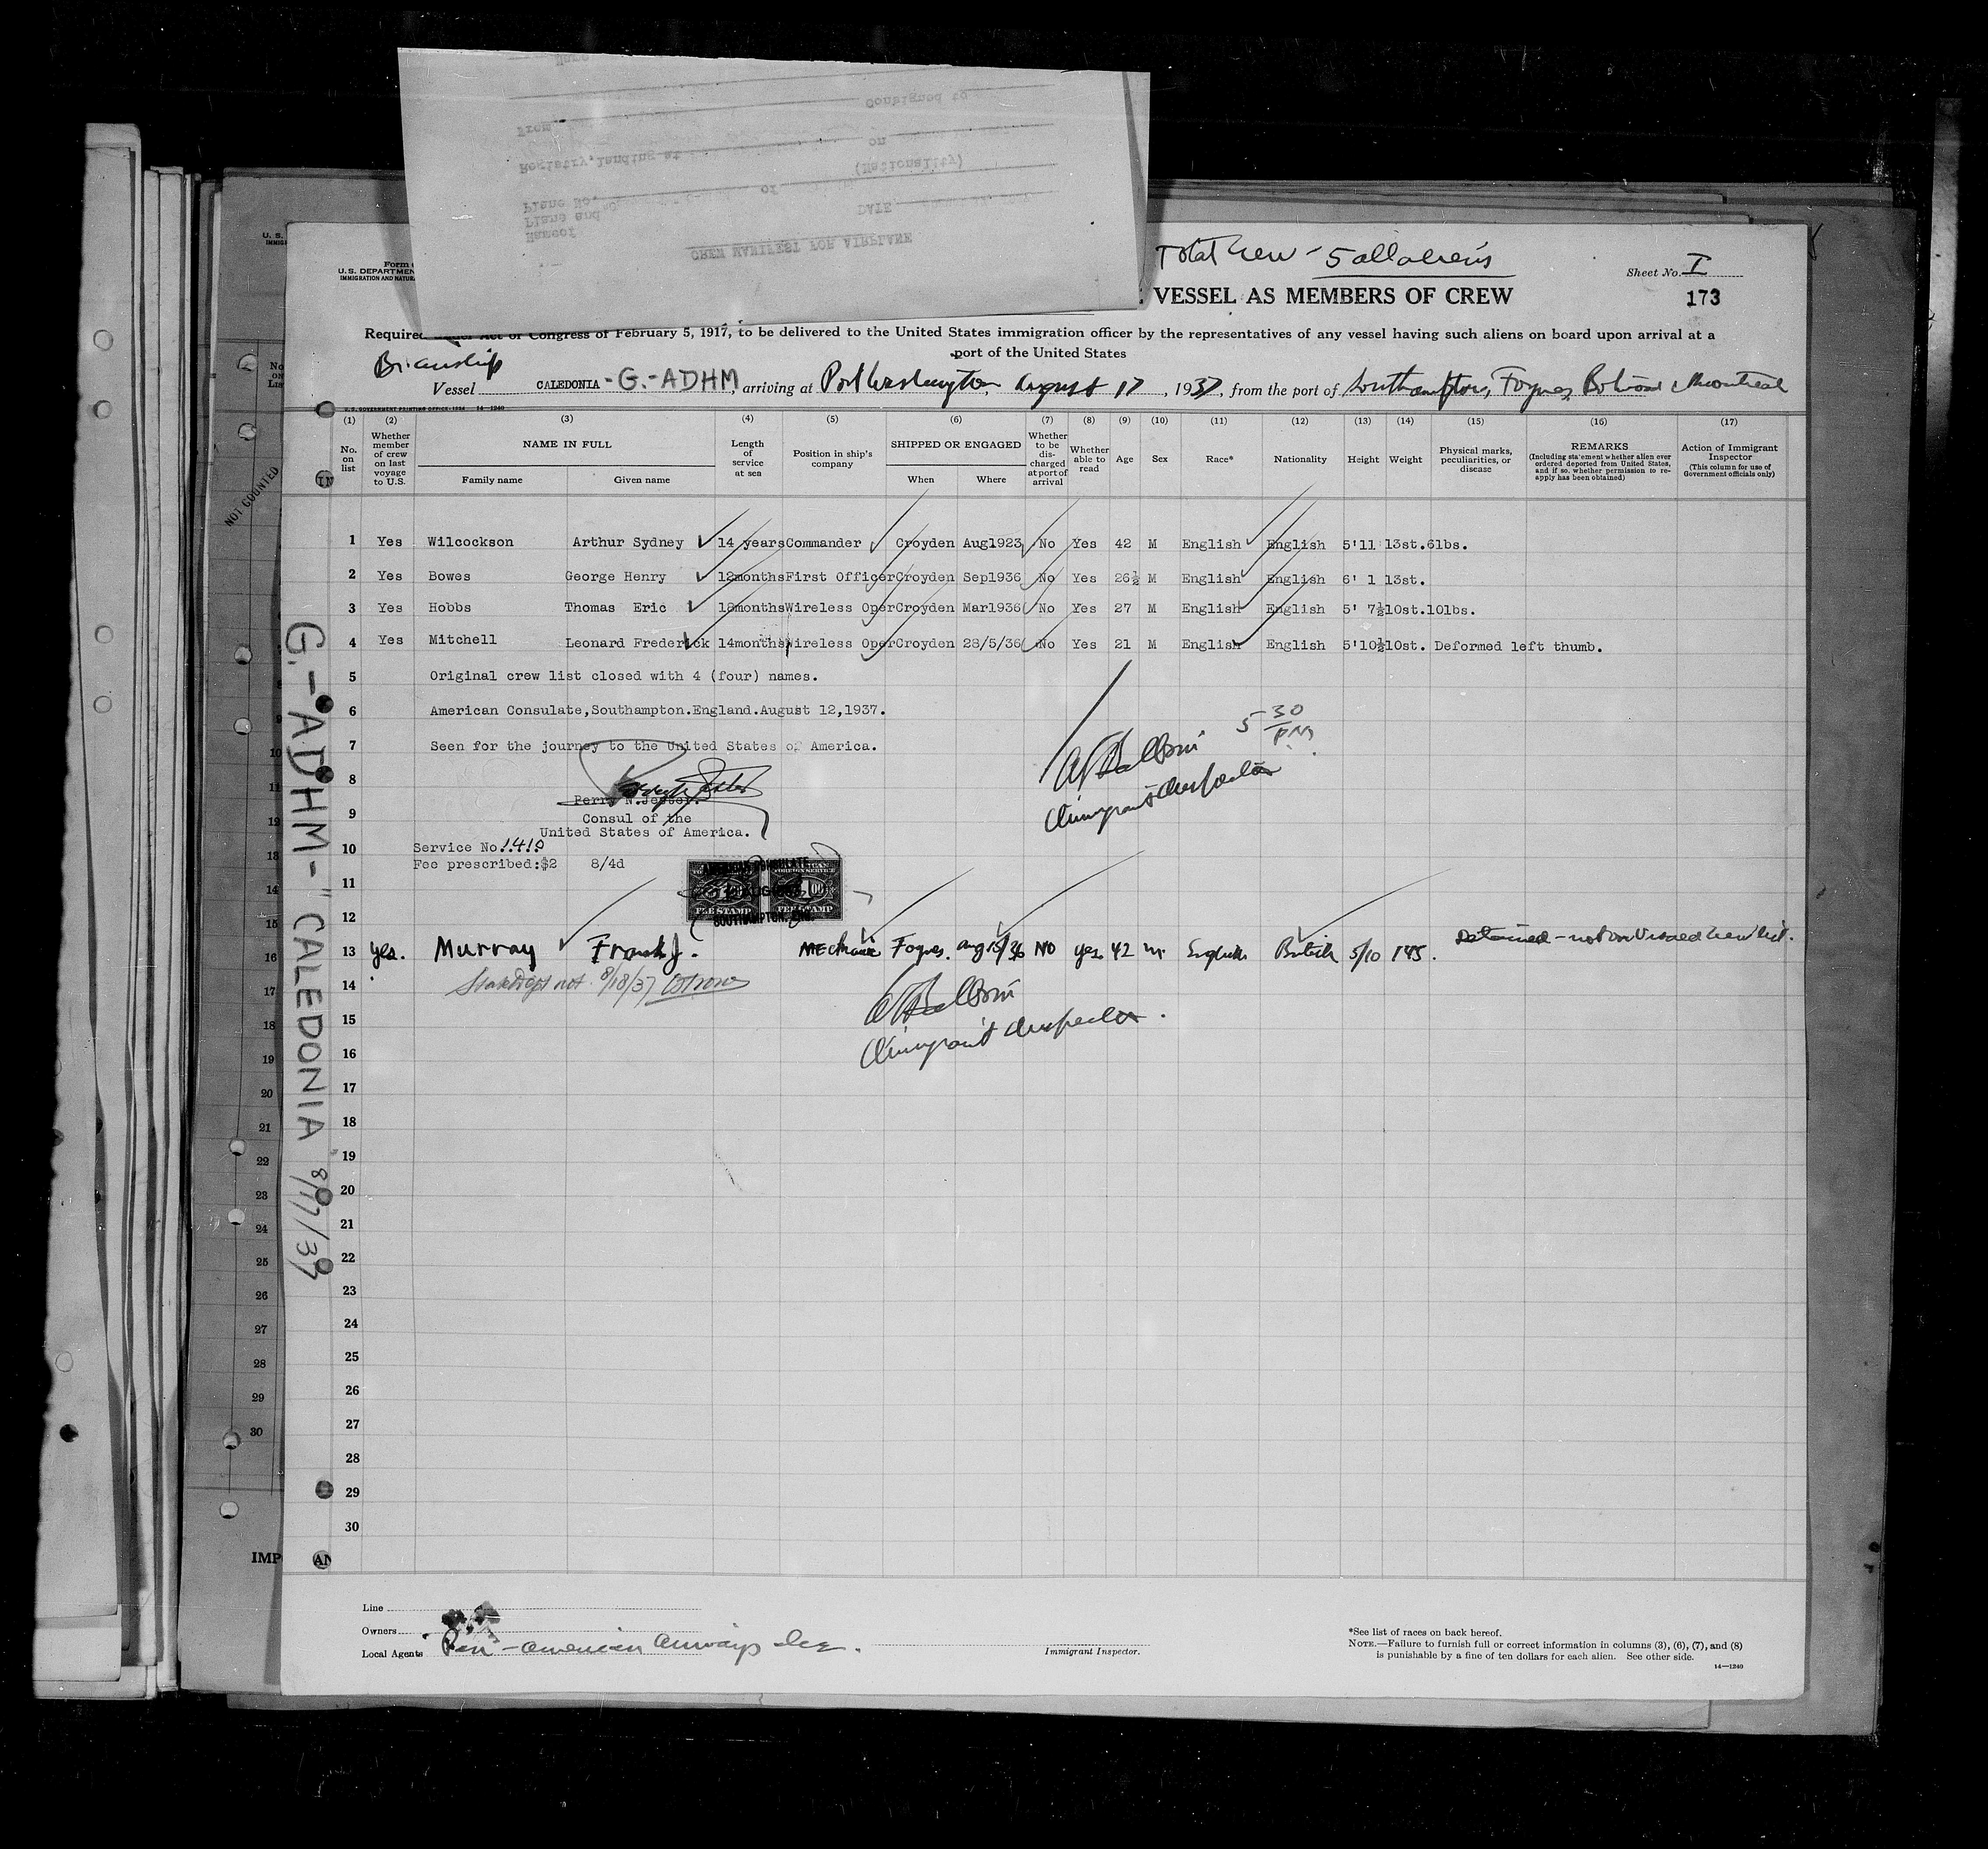 CREW MANIFEST FOR AIRPLANE
Name of
Plane and
Plane No. of DATE
(Nationality)
Registry, landing at on
From Consigned to
Form
U. S. DEPARTMEN
IMMIGRATION AND NATURA
Total Crew - 5 all aliens
Sheet No. I
VESSEL AS MEMBERS OF CREW
173
Required under Act of Congress of February 5, 1917, to be delivered to the United States immigration officer by the representatives of any vessel having such aliens on board upon arrival at a
port of the United States
Br. airship
Vessel CALEDONIA - G.-ADHM, arriving at Port Washington, August 17, 1937, from the port of Southampton, Foynes, Botwood & Montreal
U. S. GOVERNMENT PRINTING OFFICE: 1934 14—1240
(1) (2) (3) (4) (5) (6) (7) (8) (9) (10) (11) (12) (13) (14) (15) (16) (17)
No. on list
Whether member of crew on last voyage to U.S.
NAME IN FULL
Family name Given name
Length of service at sea
Position in ship's company
SHIPPED OR ENGAGED
When Where
Whether to be discharged at port of arrival
Whether able to read
Age Sex Race* Nationality Height Weight
Physical marks, peculiarities, or disease
REMARKS
(Including statement whether alien ever ordered deported from United States, and if so, whether permission to re-apply has been obtained)
Action of Immigrant Inspector
(This column for use of Government officials only)
1 Yes Wilcockson Arthur Sydney 14 years Commander Croyden Aug1923 No Yes 42 M English English 5'11 13st.6lbs.
2 Yes Bowes George Henry 12months First Officer Croyden Sep1936 No Yes 26½ M English English 6' 1 13st.
3 Yes Hobbs Thomas Eric 18months Wireless Oper Croyden Mar1936 No Yes 27 M English English 5' 7½ 10st.10lbs.
4 Yes Mitchell Leonard Frederick 14months Wireless Oper Croyden 28/5/36 No Yes 21 M English English 5'10½ 10st. Deformed left thumb.
5 Original crew list closed with 4 (four) names.
6 American Consulate,Southampton.England.August 12,1937.
7 Seen for the journey to the United States of America.
5 30 PM
Immigrant Inspector
8
Perry N.Jester.
9 Consul of the
United States of America.
10 Service No.1410
Fee prescribed:$2 8/4d
11
AMERICAN CONSULATE
FOREIGN SERVICE
FEE STAMP FEE STAMP
SOUTHAMPTON, ENG.
12
13 yes. Murray Frank J. Mechanic Foynes. Aug 15/36 NO yes 42 m. English British 5/10 145. Detained - not on Visaed Crew list.
14 8/18/37
15
Immigrant Inspector.
16
17
18
19
20
21
22
23
24
25
26
27
28
29
30
G.-ADHM-"CALEDONIA 8/17/37
NOT COUNTED
Line
Owners
Local Agents Pan-American Airways Inc.
Immigrant Inspector.
*See list of races on back hereof.
NOTE.—Failure to furnish full or correct information in columns (3), (6), (7), and (8)
is punishable by a fine of ten dollars for each alien. See other side.
14—1240